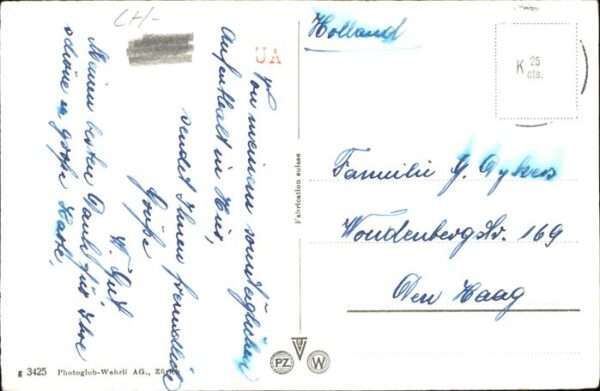 Holland
CH/-
UA
K 25 cts.
Von meinem sonntäglichen
Aufenthalt in Hier,
sendet Ihnen freundliche
Grüße
W. Gut
Meinen besten Dank für Ihre
schöne u. große Karte.
Familie G.
Woudenbergstr. 169
Den Haag
Fabrication suisse
g 3425 Photoglob-Wehrli AG., Zürich
PZ W